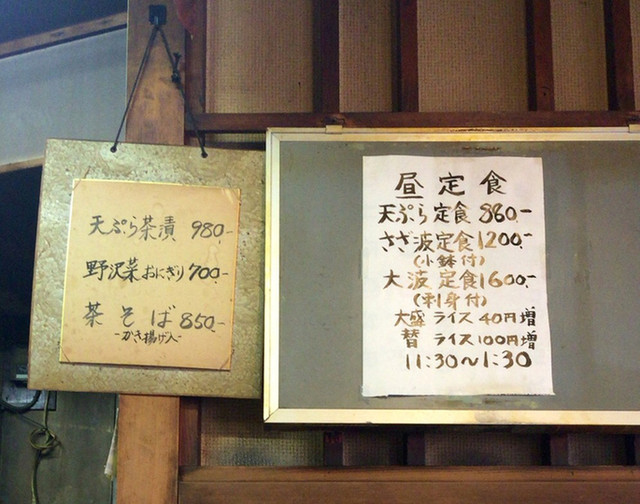 天ぷら茶漬 980.-
野沢菜おにぎり 700.-
茶そば 850.-
-かき揚げ入-
昼定食
天ぷら定食 860.-
さざ波定食 1200.-
(小鉢付)
大波定食 1600.-
(刺身付)
大盛 ライス 40円増
替 ライス 100円増
11:30〜1:30